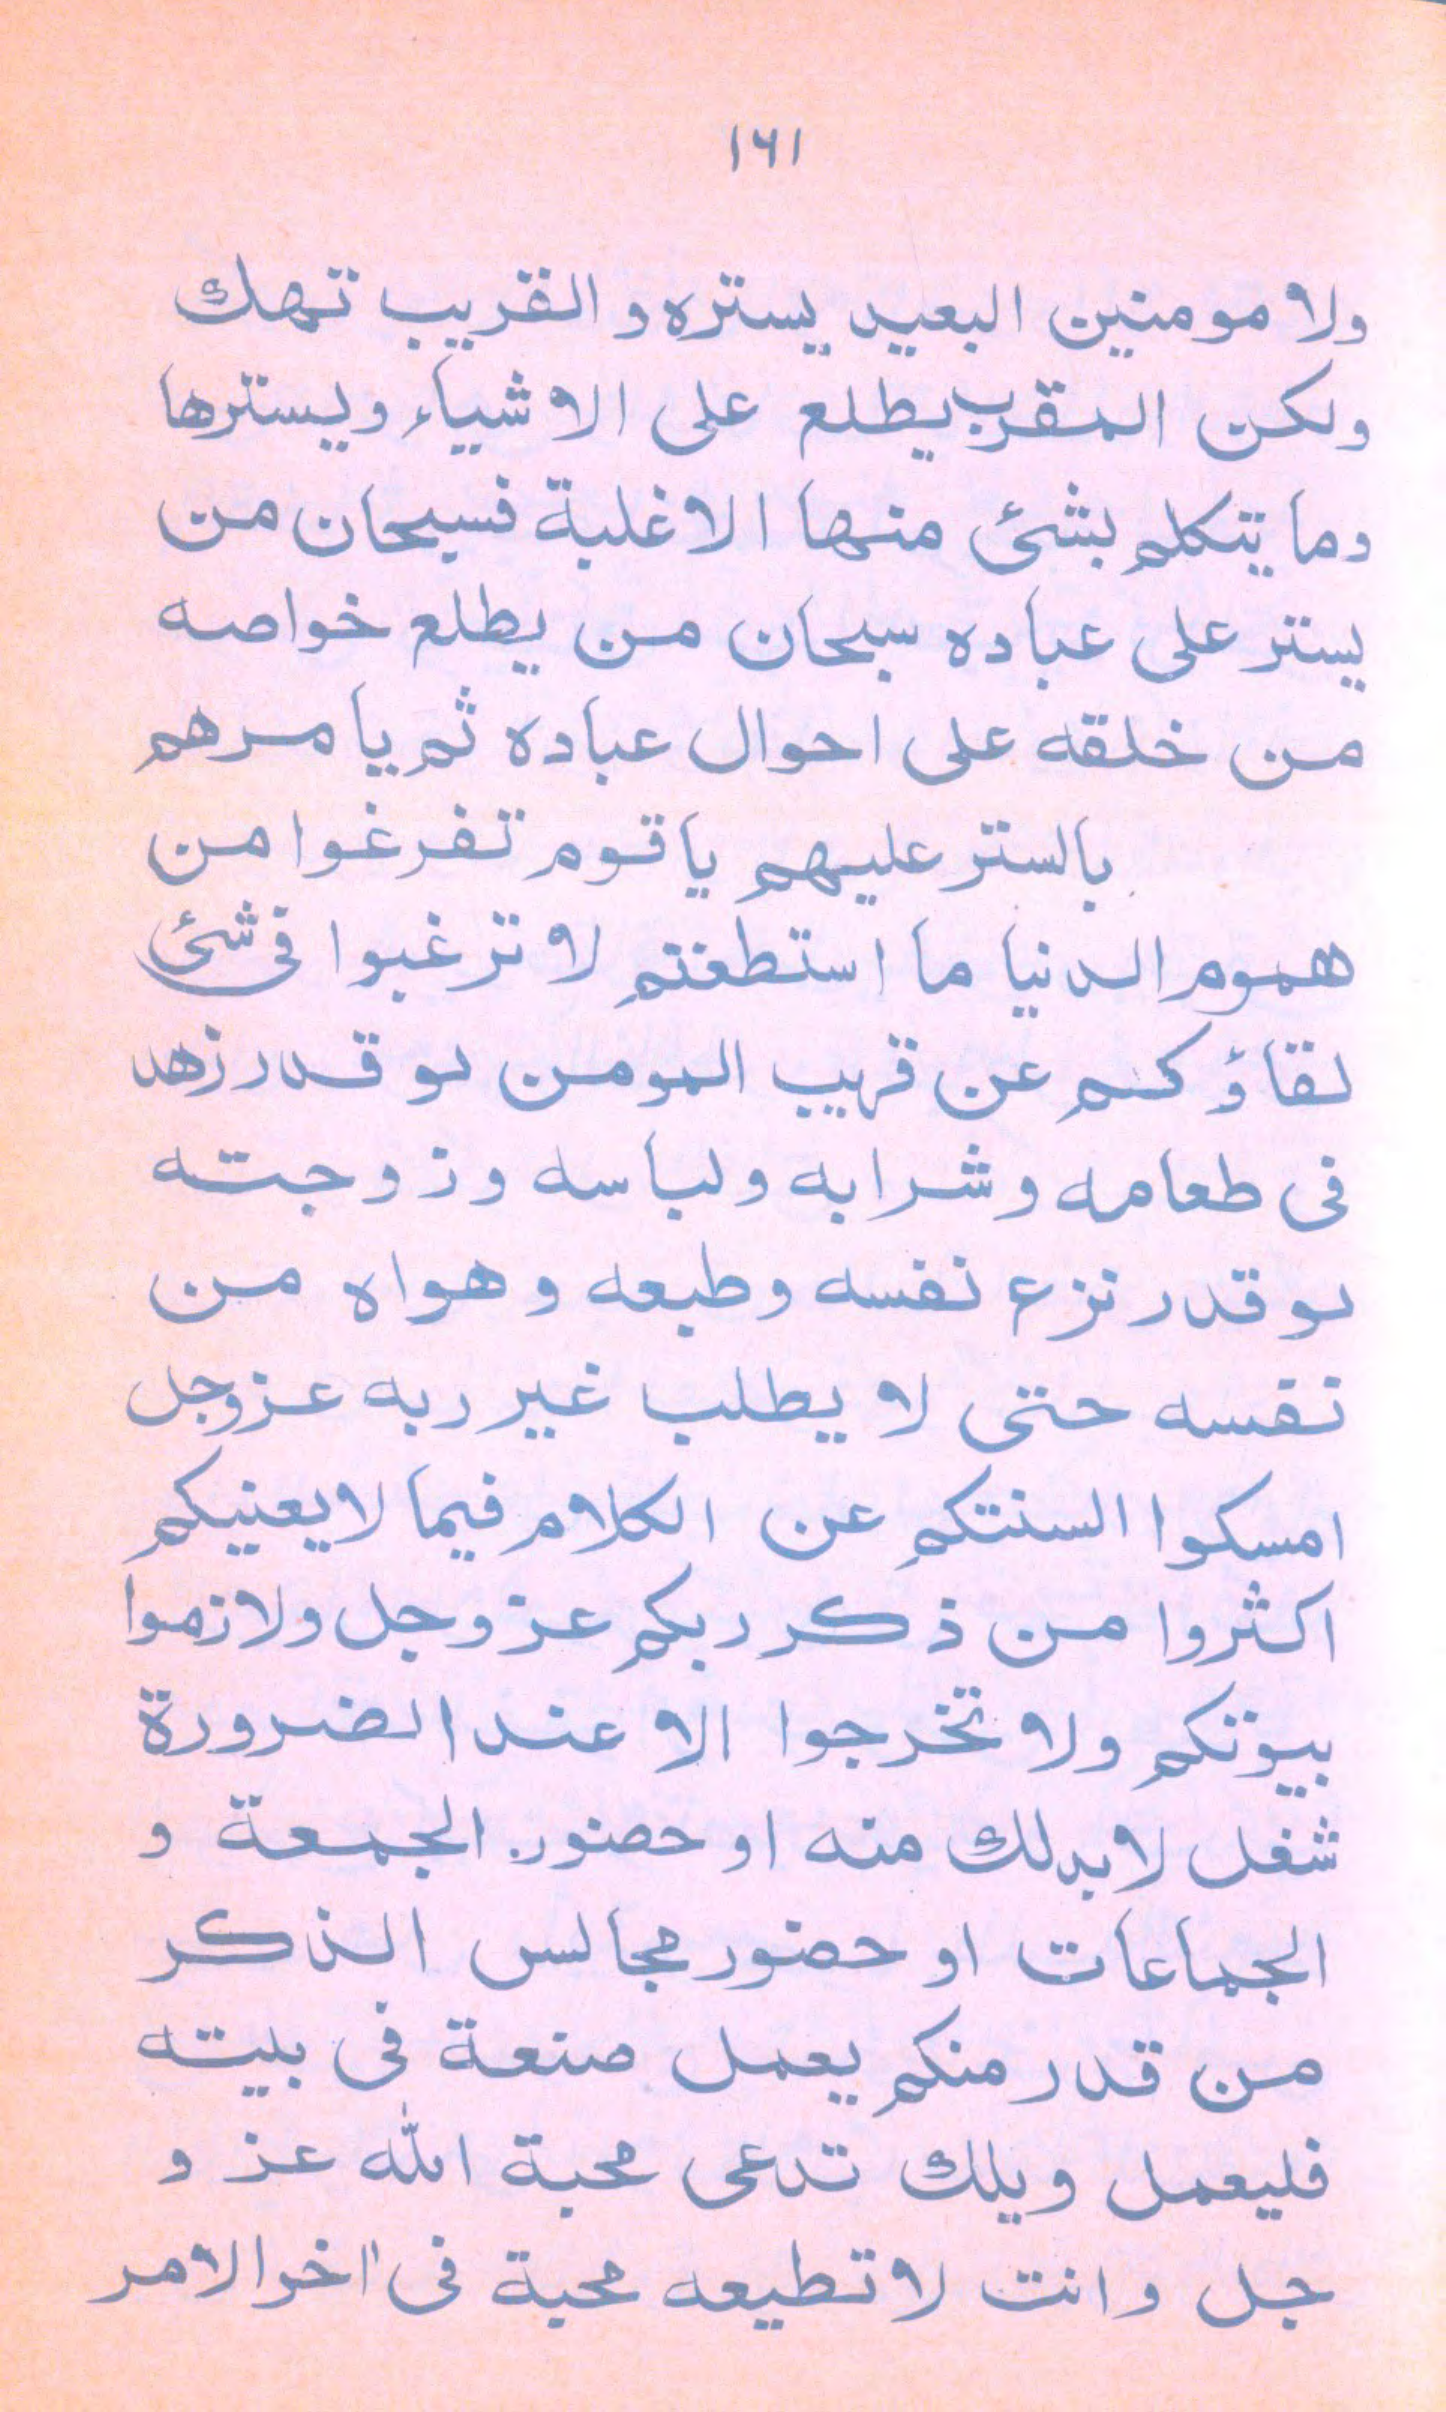 ١٦١
ولا مومنين البعيد يستره والقريب تهك
ولكن المقرب يطلع على الاشياء ويسترها
وما يتكلم بشئ منها الا غلبة فسبحان من
يستر على عباده سبحان من يطلع خواصه
من خلقه على احوال عباده ثم يا مرهم
بالستر عليهم يا قوم تفرغوا من
هموم الدنيا ما استطعتم لا ترغبوا فى شئ
لقاؤكم عن قريب المومن لو قدر زهد
فى طعامه وشرابه ولباسه وزوجته
لو قدر نزع نفسه وطبعه وهواه من
نفسه حتى لا يطلب غير ربه عزوجل
امسكوا السنتكم عن الكلام فيما لا يعنيكم
اكثروا من ذكر ربكم عز وجل ولازموا
بيوتكم ولا تخرجوا الا عند الضرورة
شغل لابد لك منه او حضور الجمعة و
الجماعات او حضور مجالس الذكر
من قدر منكم يعمل صنعة فى بيته
فليعمل ويلك تدعى محبة الله عز و
جل وانت لا تطيعه محبة فى اخر الامر